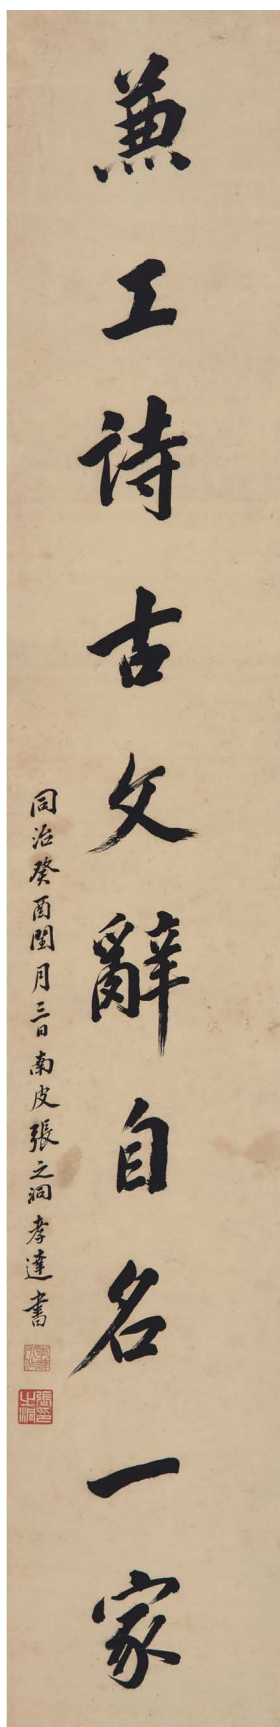 兼工詩古文辭自名一家
同治癸酉閏月三日南皮張之洞孝達書
張之洞印